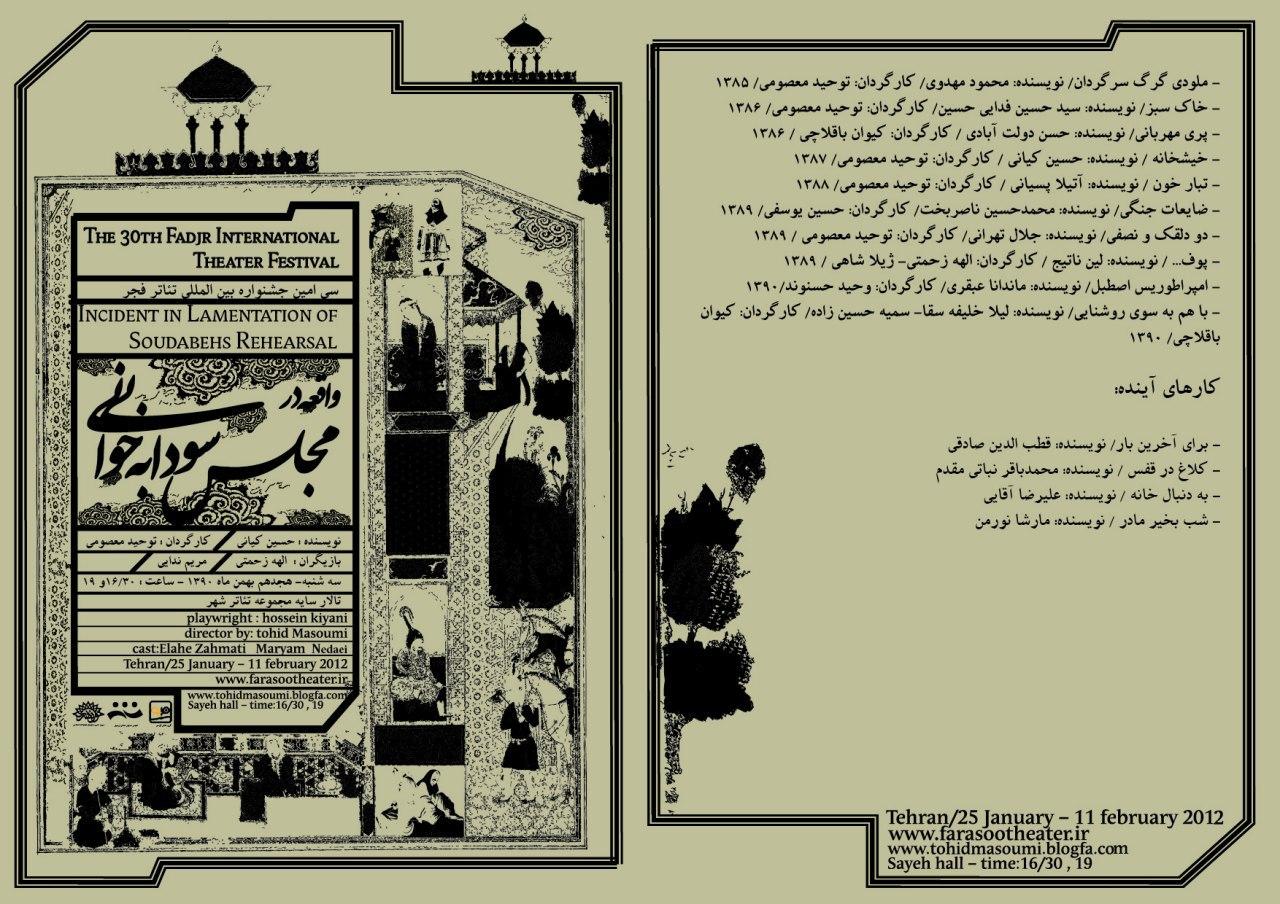 The 30th Fadjr International
Theater Festival
سی امین جشنواره بین المللی تئاتر فجر
Incident in Lamentation of
Soudabehs Rehearsal
واقعه در
مجلس سودابه خوانی
نویسنده : حسین کیانی / کارگردان : توحید معصومی
بازیگران : الهه زحمتی / مریم ندایی /
سه شنبه- هجدهم بهمن ماه ۱۳۹۰ - ساعت : ۱۶/۳۰و ۱۹
تالار سایه مجموعه تئاتر شهر
playwright : hossein kiyani
director by: tohid Masoumi
cast:Elahe Zahmati Maryam Nedaei
Tehran/25 January – 11 february 2012
www.farasootheater.ir
www.tohidmasoumi.blogfa.com
Sayeh hall – time:16/30 , 19
- ملودی گرگ سرگردان/ نویسنده: محمود مهدوی/ کارگردان: توحید معصومی/ ۱۳۸۵
- خاک سبز/ نویسنده: سید حسین فدایی حسین/ کارگردان: توحید معصومی/ ۱۳۸۶
- پری مهربانی/ نویسنده: حسن دولت آبادی / کارگردان: کیوان باقلاچی / ۱۳۸۶
- خیشخانه / نویسنده: حسین کیانی / کارگردان: توحید معصومی/ ۱۳۸۷
- تبار خون / نویسنده: آتیلا پسیانی / کارگردان: توحید معصومی/ ۱۳۸۸
- ضایعات جنگی/ نویسنده: محمدحسین ناصربخت/ کارگردان: حسین یوسفی/ ۱۳۸۹
- دو دلقک و نصفی/ نویسنده: جلال تهرانی/ کارگردان: توحید معصومی / ۱۳۸۹
- پوف... / نویسنده: لین ناتیج / کارگردان: الهه زحمتی- ژیلا شاهی / ۱۳۸۹
- امپراطوریس اصطبل/ نویسنده: ماندانا عبقری/ کارگردان: وحید حسنوند/۱۳۹۰
- با هم به سوی روشنایی/ نویسنده: لیلا خلیفه سقا- سمیه حسین زاده/ کارگردان: کیوان
باقلاچی/ ۱۳۹۰
کارهای آینده:
- برای آخرین بار/ نویسنده: قطب الدین صادقی
- کلاغ در قفس / نویسنده: محمدباقر نباتی مقدم
- به دنبال خانه / نویسنده: علیرضا آقایی
- شب بخیر مادر / نویسنده: مارشا نورمن
Tehran/25 January – 11 february 2012
www.farasootheater.ir
www.tohidmasoumi.blogfa.com
Sayeh hall – time:16/30 , 19